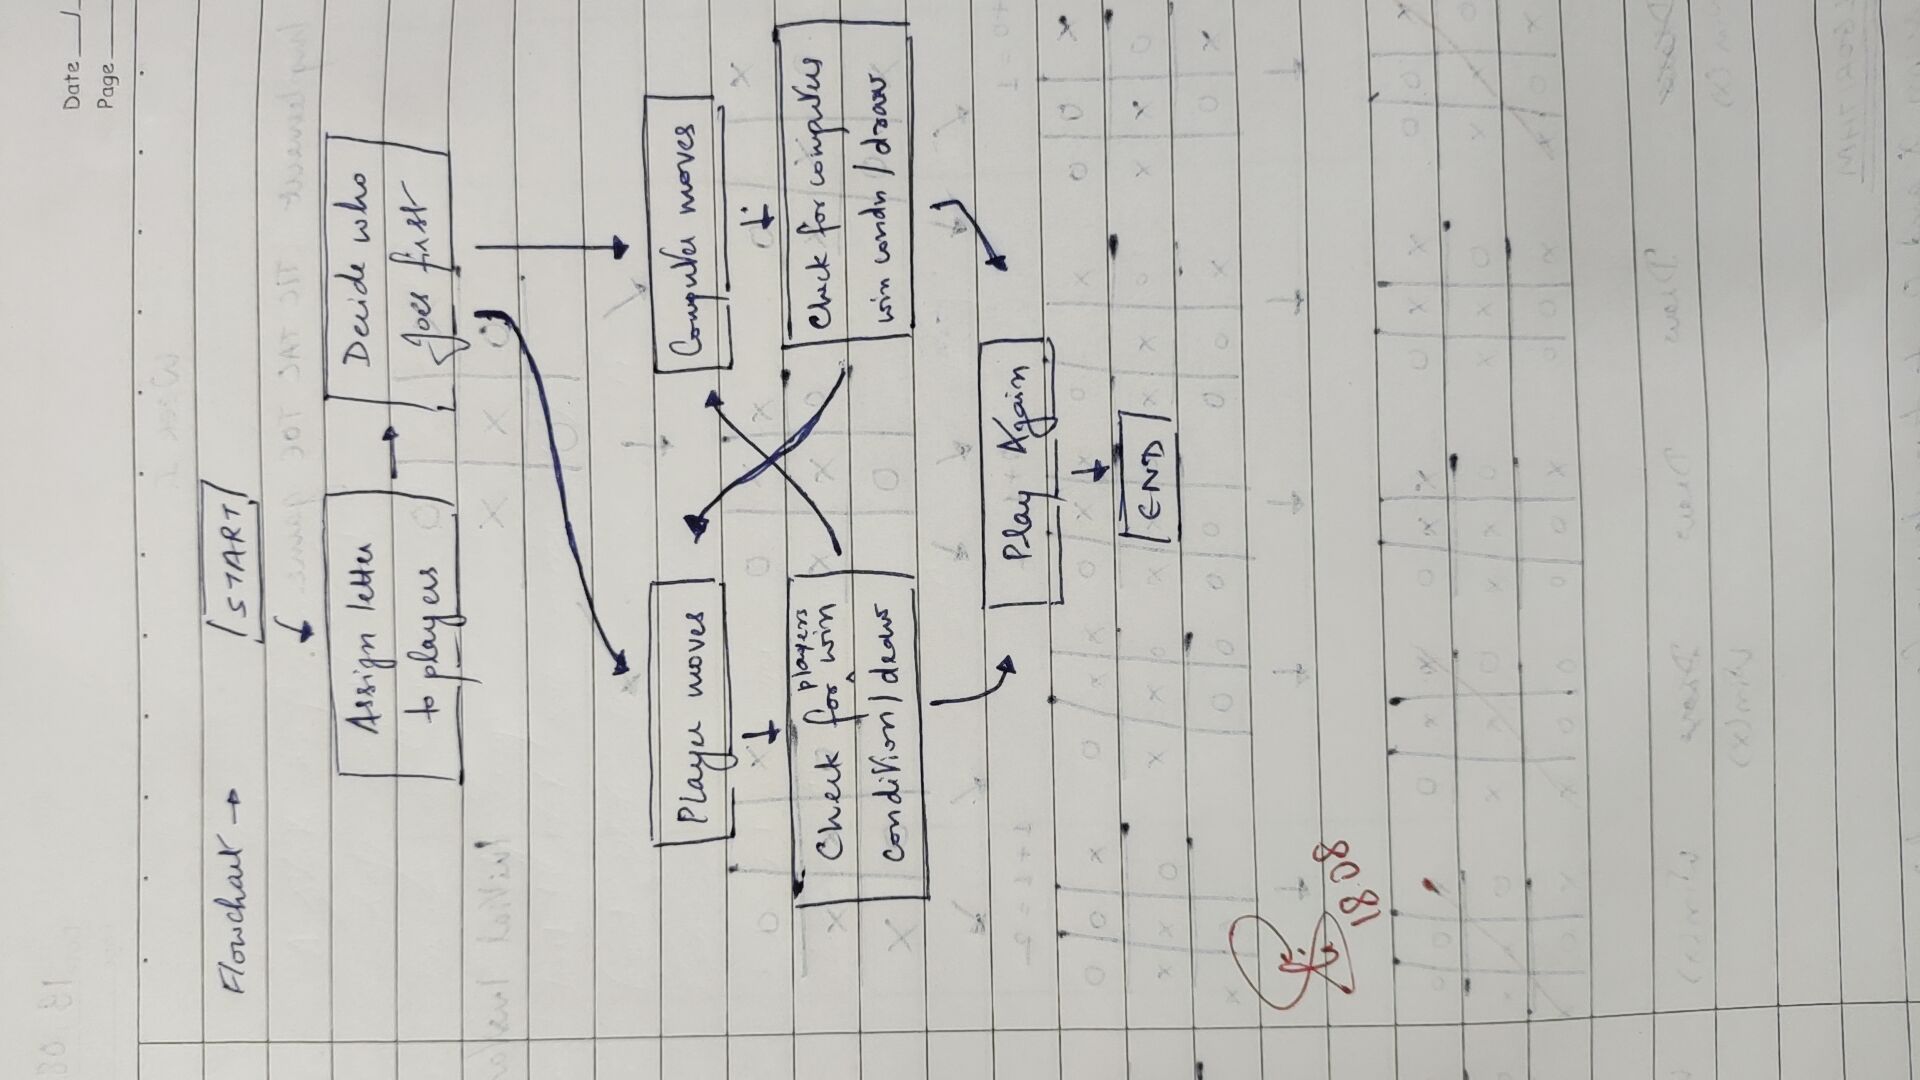 Date
Page
Flowchart → START
Assign letter
to players
Decide who
goes first
Player moves
Computer moves
players
Check for win
condition/draw
Check for computers
win condn / draw
Play Again
END
18.08